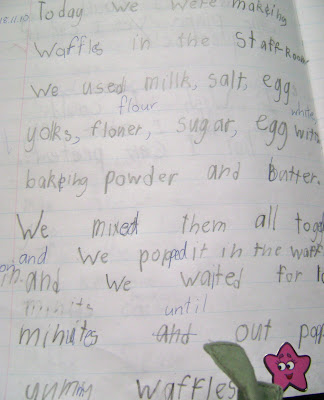 13.11.10 Today we were making
Waffles in the Staff-Room
We used millk, salt, egg
flour
yolks, floner, sugar, egg white
baking powder and butter.
We mixed them all toge
and We popped it in the waff
in. and we waited for 10
minits until
minutes and out pop
yummy waffles